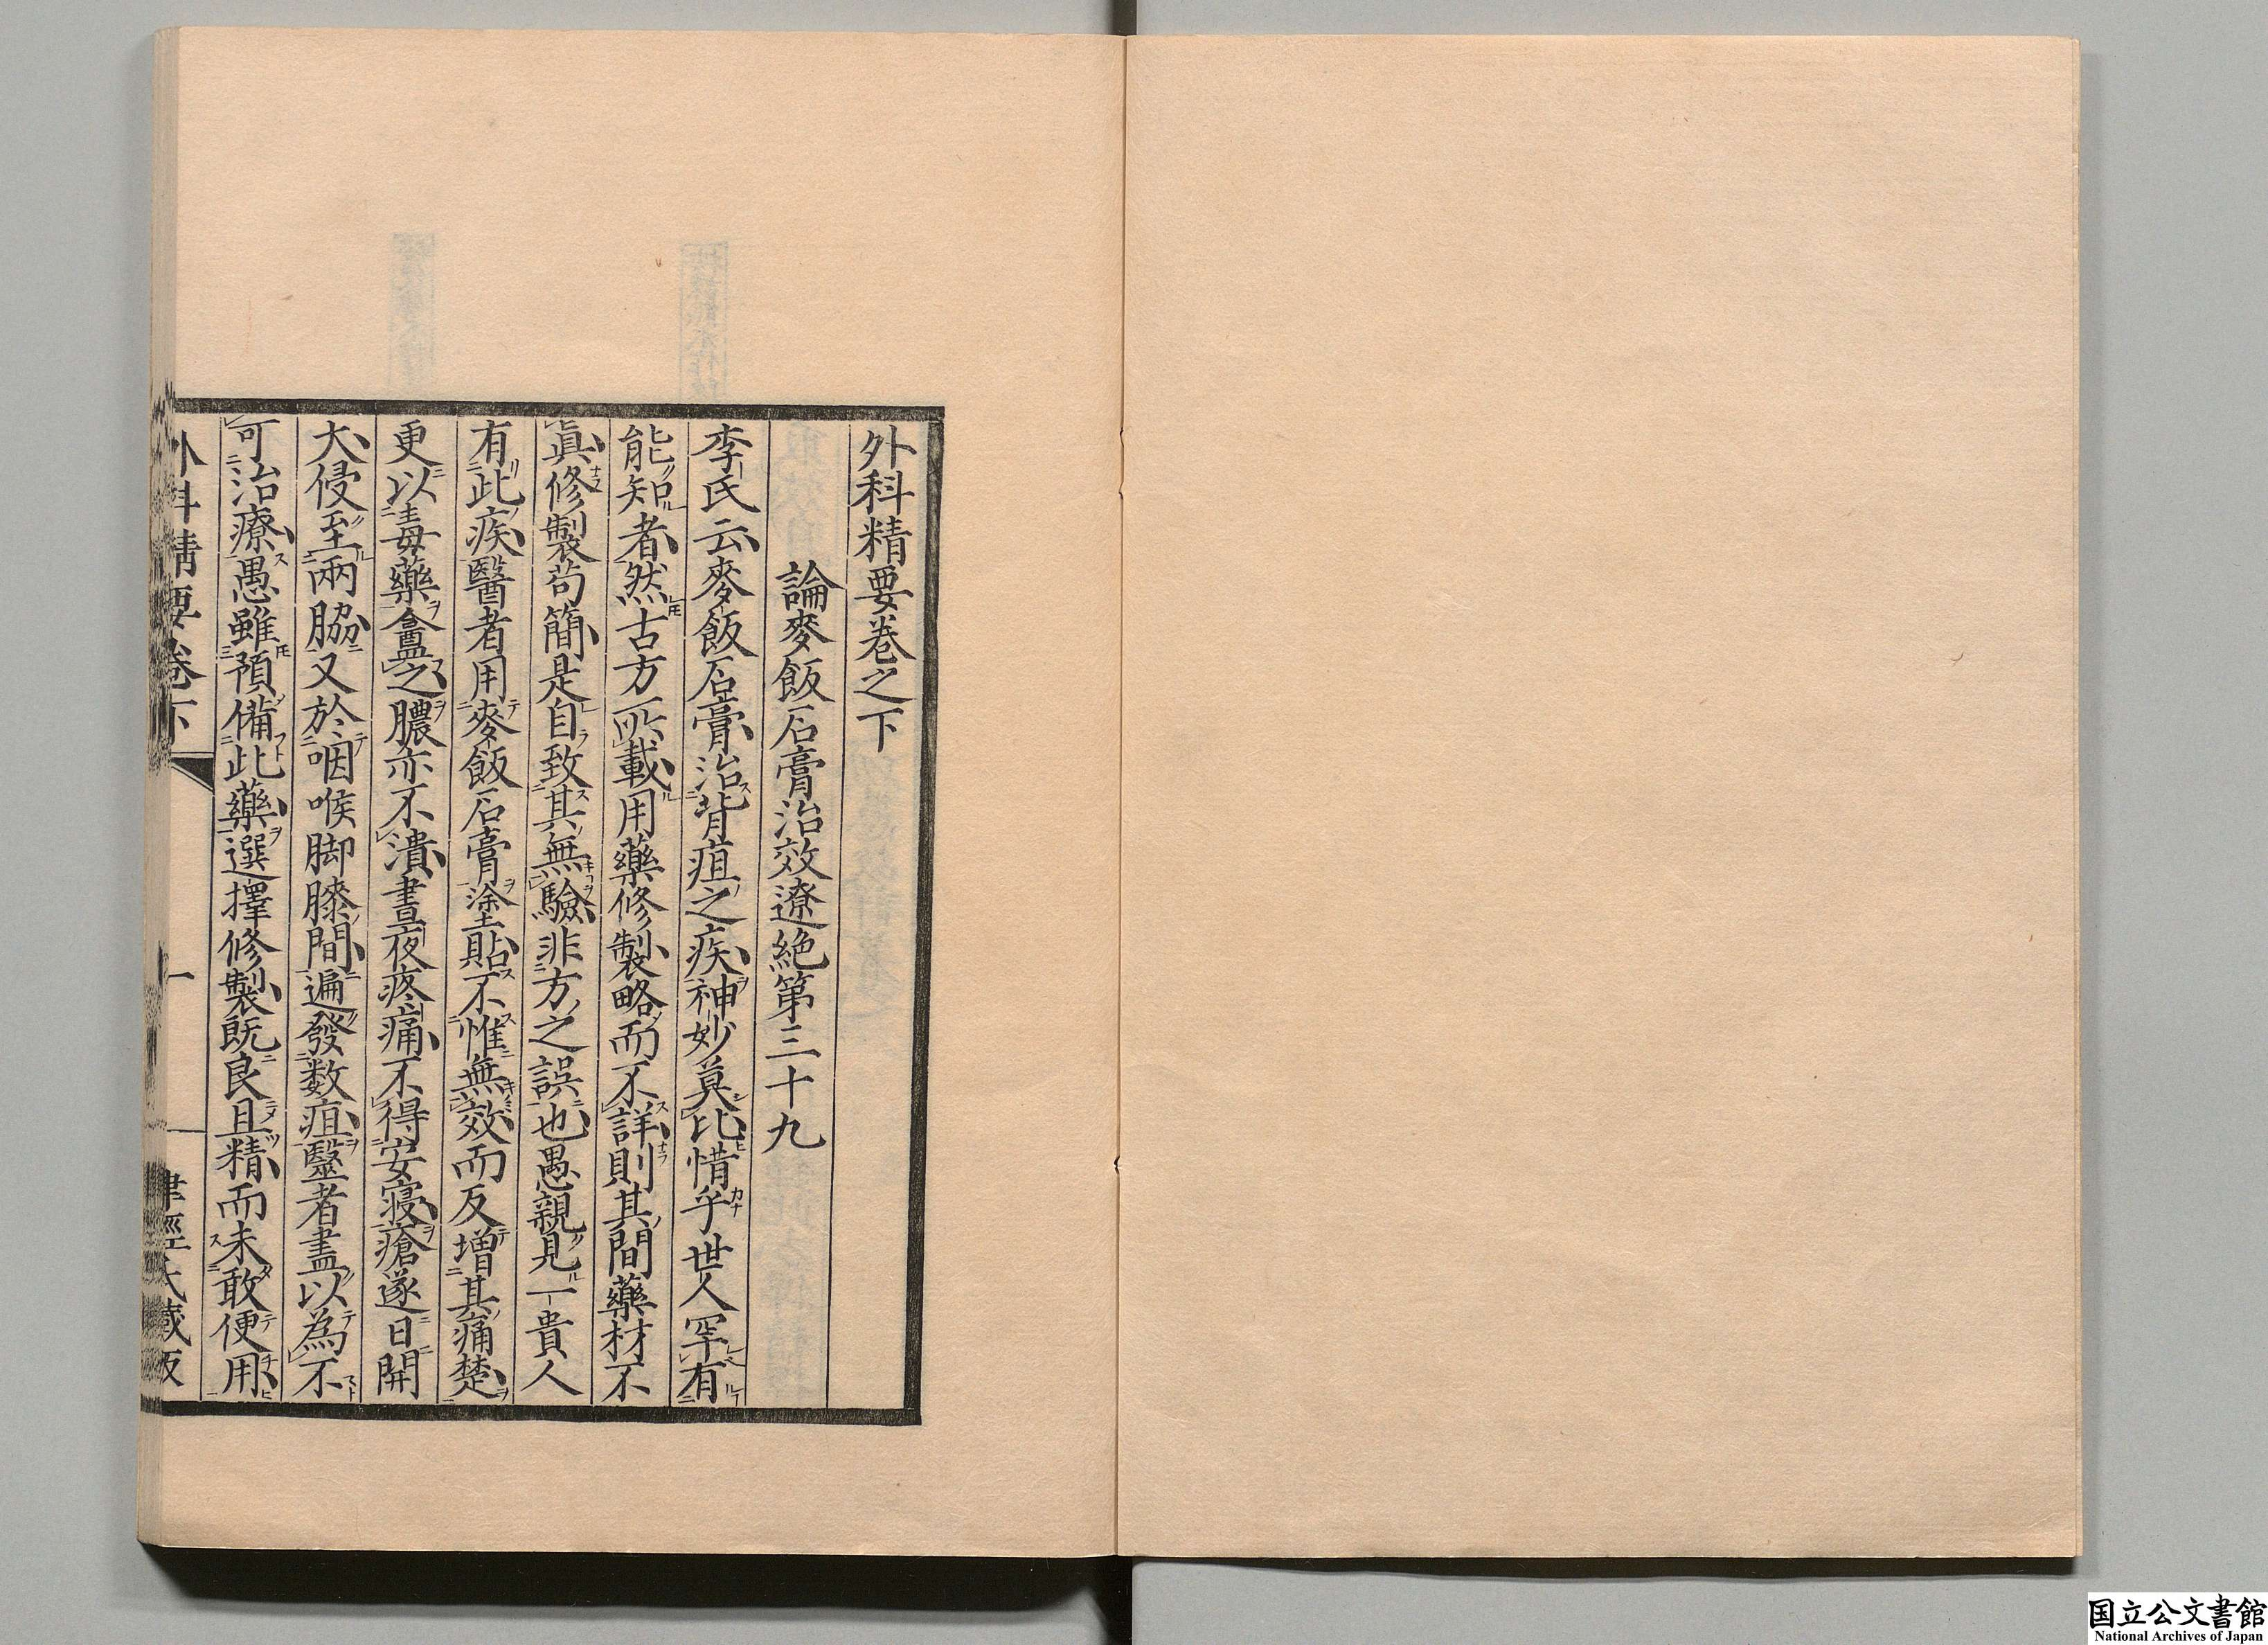 外科精要卷之下
論麥飯石膏治效遼絶第三十九
李氏云麥飯石膏治背疽之疾神妙莫比惜乎世人罕有
能知者然古方所載用藥修製略而不詳則其間藥材不
眞修製苟簡是自致其無驗非方之誤也愚親見一貴人
有此疾醫者用麥飯石膏塗貼不惟無效而反増其痛楚
更以毒藥盦之膿亦不潰晝夜疼痛不得安寢瘡遂日開
大侵至兩脇又於咽喉脚膝間遍發数疽毉者盡以為不
可治療愚雖預備此藥選擇修製既良且精而未敢便用
外科精要卷下
一
聿脩氏蔵版
国立公文書館
National Archives of Japan